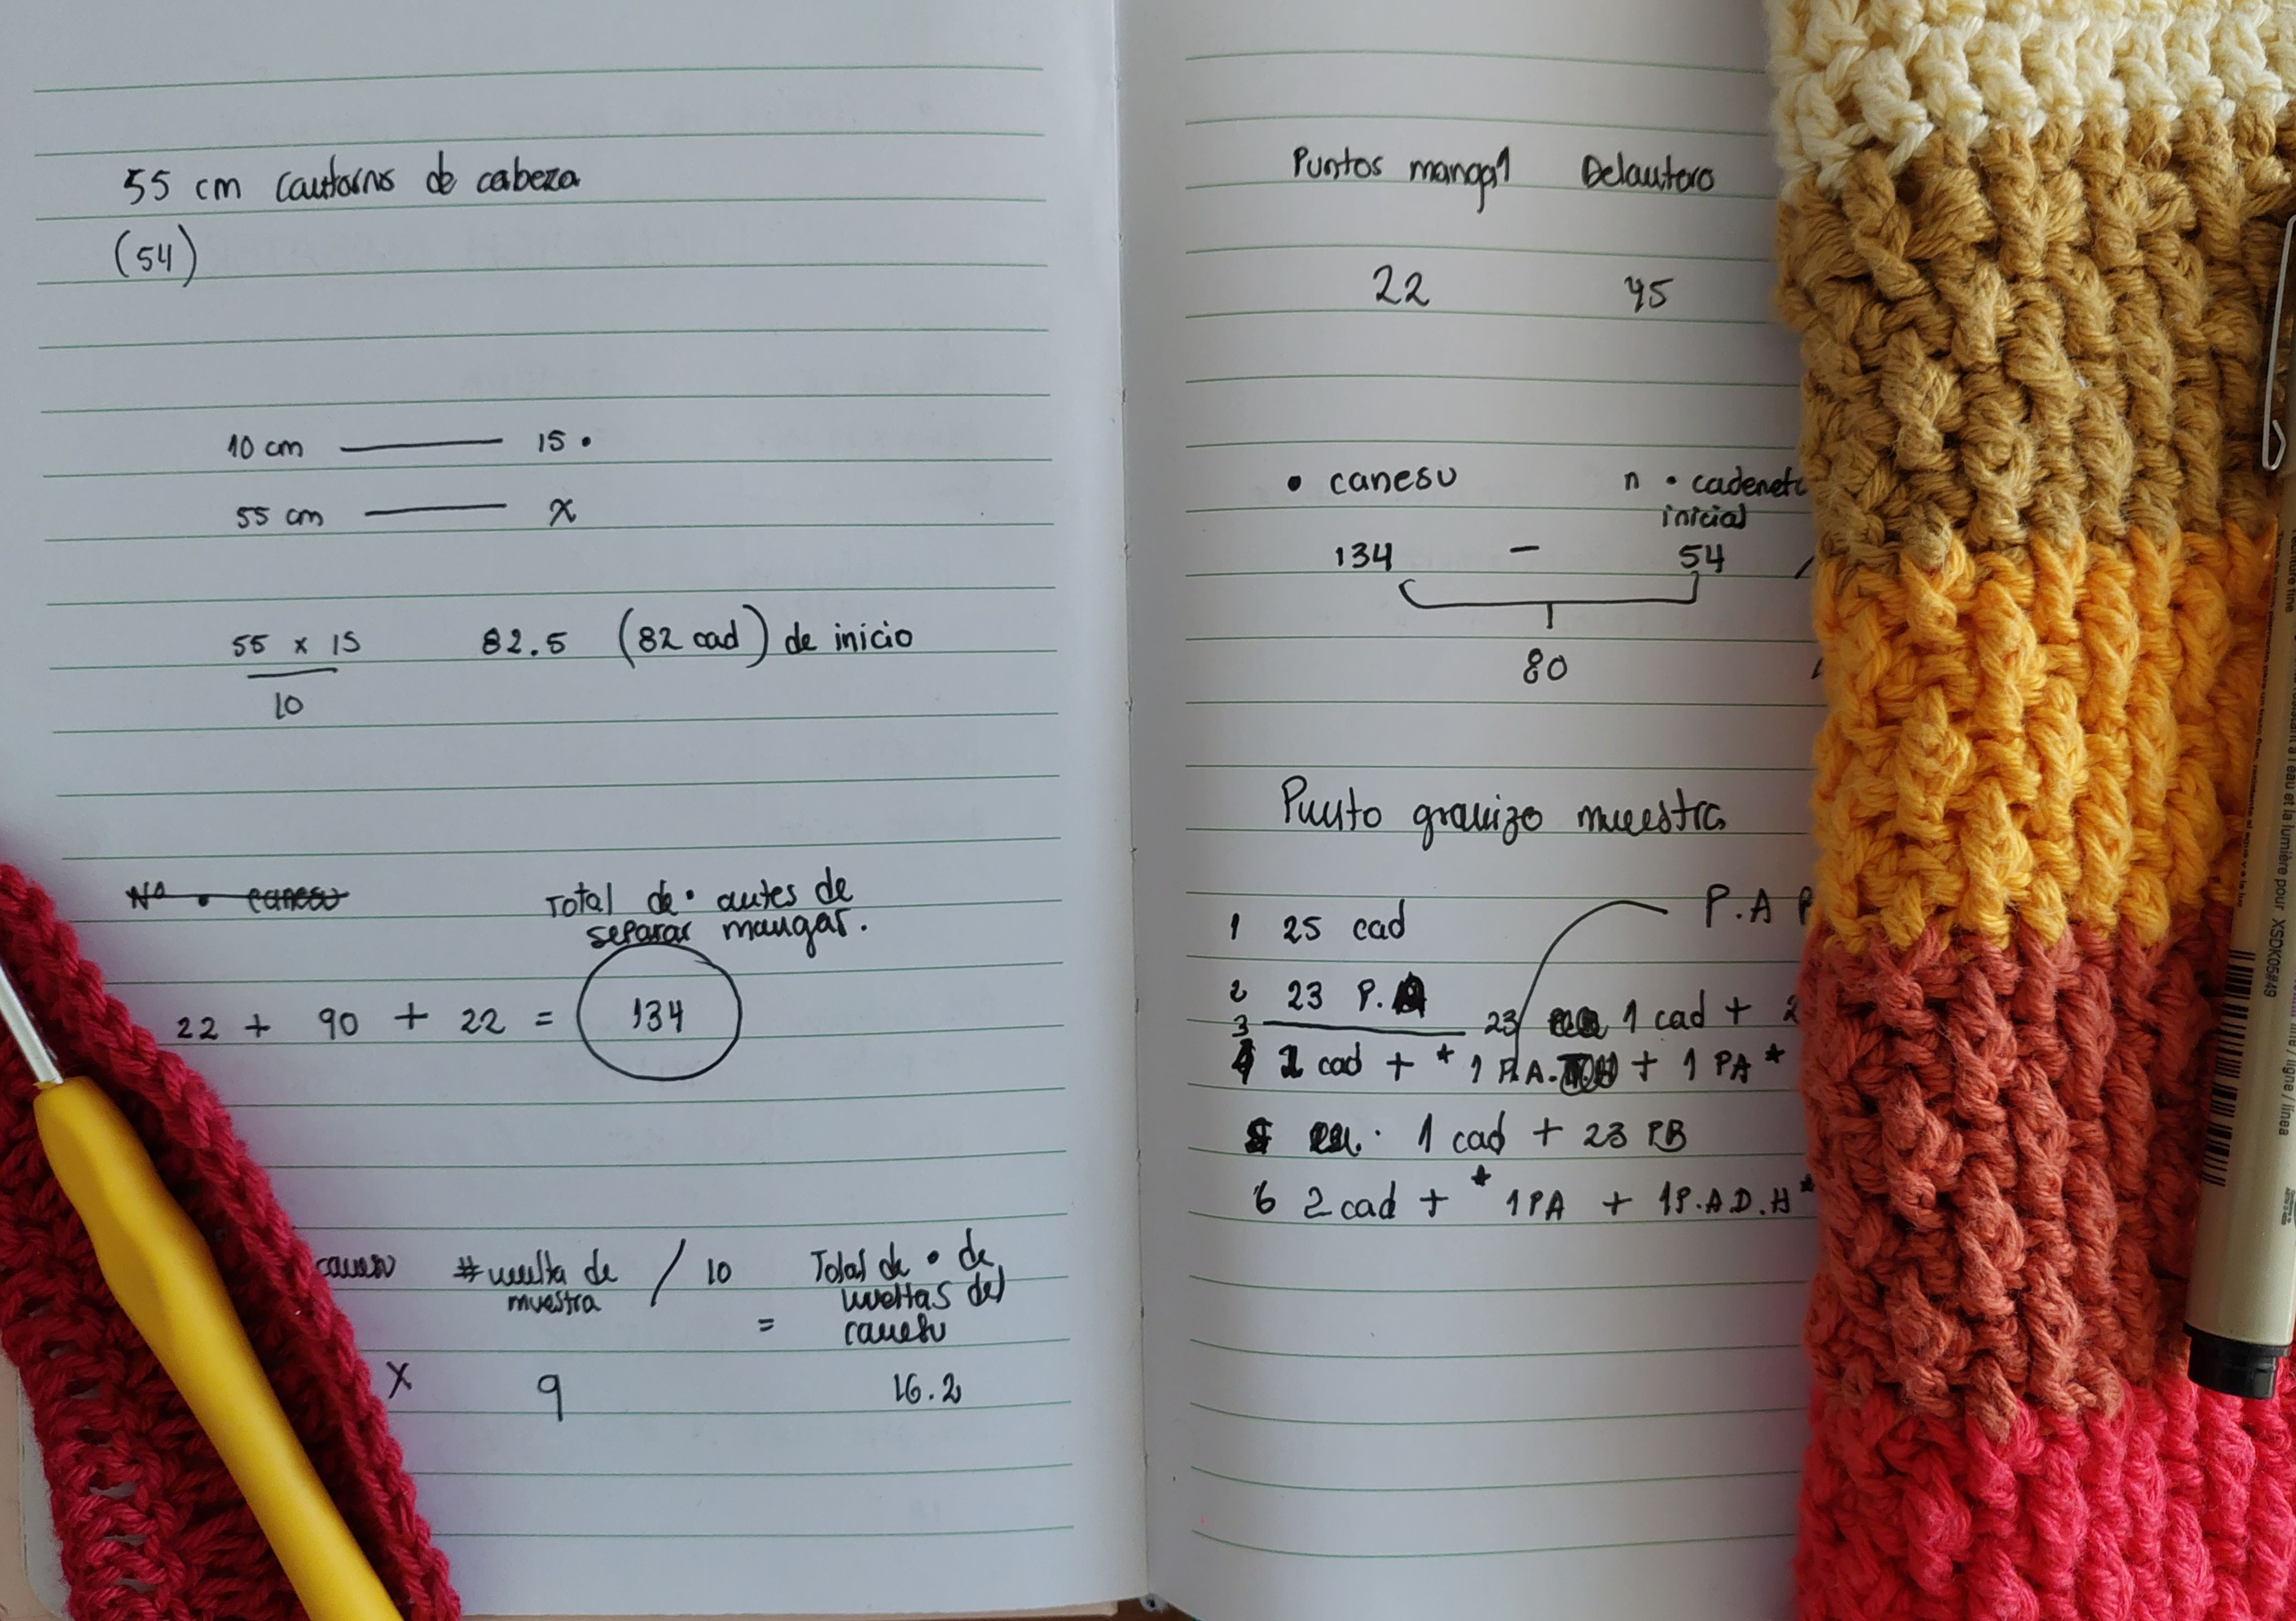 55 cm contorno de cabeza
(54)
10 cm — 15 •
55 cm — x
55 x 15
10
82.5 (82 cad) de inicio
Nº • canesu
Total de • antes de
separar mangas.
22 + 90 + 22 = 134
canesu # vuelta de
muestra / 10
= Total de • de
vueltas del
canesu
x 9 16.2
Puntos manga1 Delantero
22 45
• canesu n • cadenet
inicial
134 - 54
80
Punto granizo muestra
1 25 cad
P.A
2 23 P.
3 23 1 cad + 2
4 2 cad + * 1 P.A. + 1 PA *
5 1 cad + 23 PB
6 2 cad + * 1PA + 1P.A.D.H *
XSDK05#49